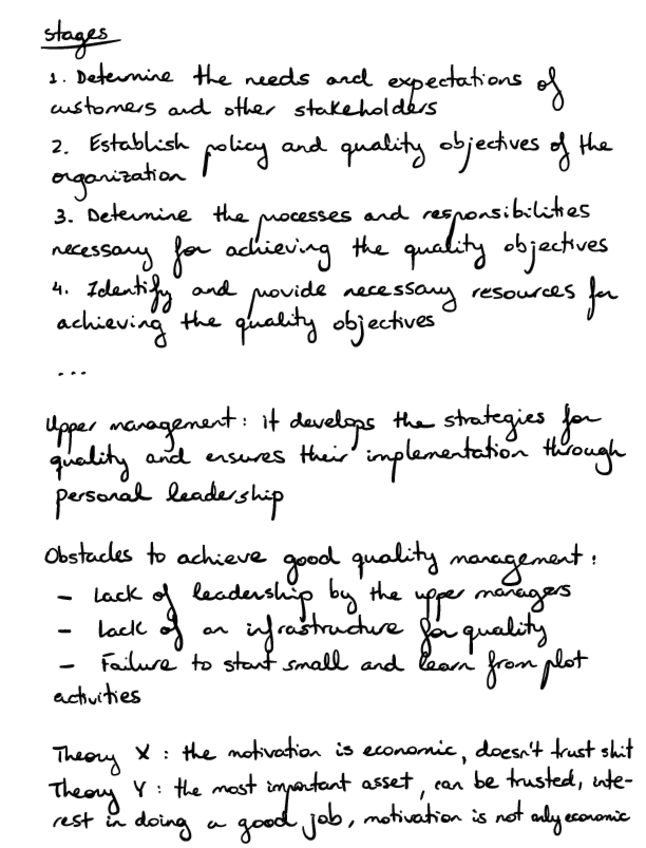 stages
1. Determine the needs and expectations of
customers and other stakeholders
2. Establish policy and quality objectives of the
organization
3. Determine the processes and responsibilities
necessary for achieving the quality objectives
4. Identify and provide necessary resources for
achieving the quality objectives
...
Upper management: it develops the strategies for
quality and ensures their implementation through
personal leadership
Obstacles to achieve good quality management:
- Lack of leadership by the upper managers
- Lack of an infrastructure for quality
- Failure to start small and learn from plot
activities
Theory X: the motivation is economic, doesn't trust shit
Theory Y: the most important asset, can be trusted, inte-
rest in doing a good job, motivation is not only economic